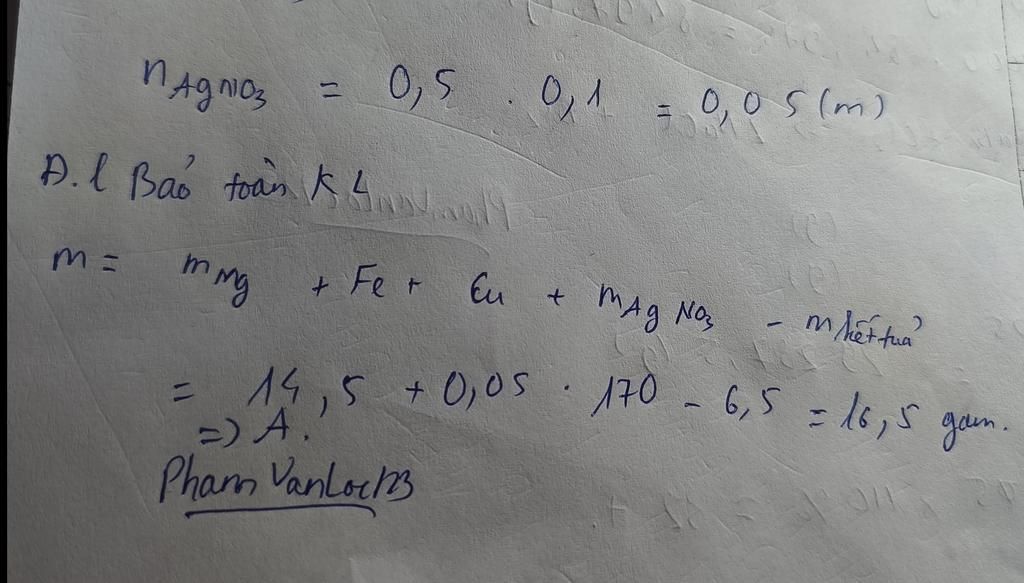 nAgNO3 = 0,5 . 0,1 = 0,05 (m)
Đ.l Bảo toàn KL
m = mMg + Fe + Cu + mAgNO3 - m kết tủa
= 14,5 + 0,05 . 170 - 6,5 = 16,5 gam.
=> A.
Pham VanLoc123